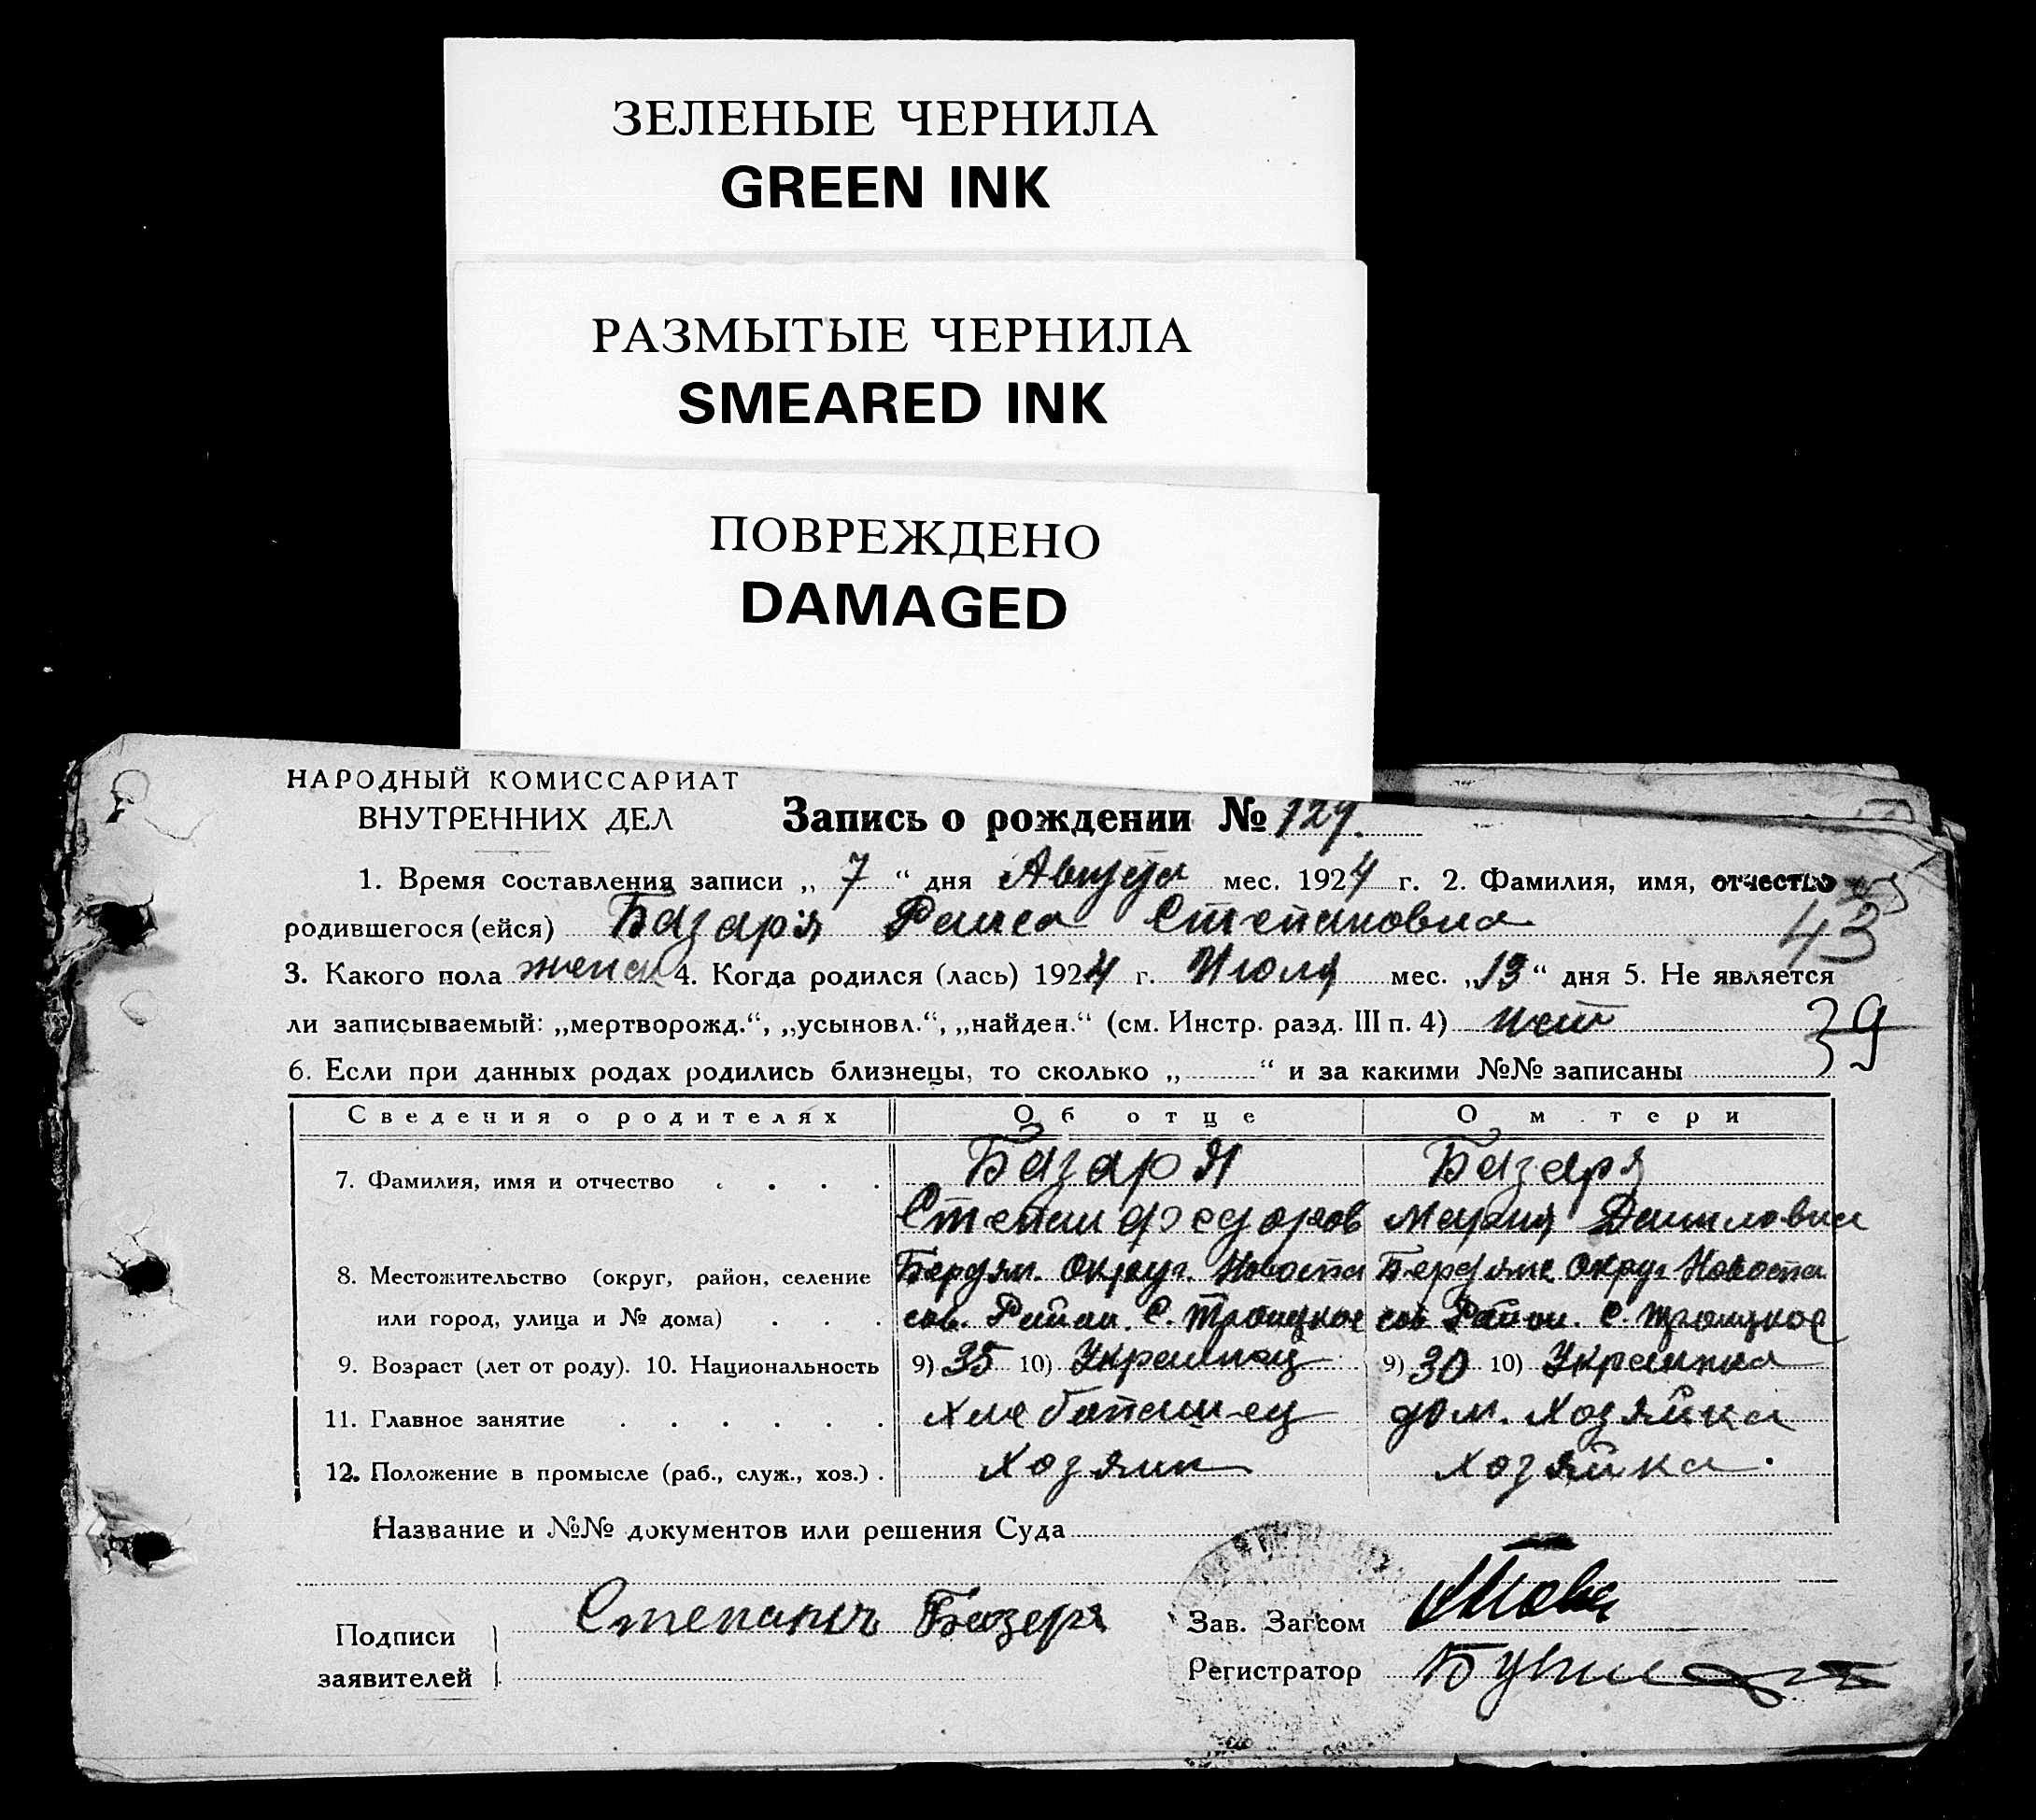 ЗЕЛЕНЫЕ ЧЕРНИЛА
GREEN INK
РАЗМЫТЫЕ ЧЕРНИЛА
SMEARED INK
ПОВРЕЖДЕНО
DAMAGED
НАРОДНЫЙ КОМИССАРИАТ
ВНУТРЕННИХ ДЕЛ
Запись о рождении № 129.
1. Время составления записи „ 7 “ дня Августа мес. 1924 г. 2. Фамилия, имя, отчество
родившегося (ейся) Базаря Раиса Степановна 43
3. Какого пола женск 4. Когда родился (лась) 1924 г. Июля мес. „13“ дня 5. Не является
ли записываемый: „мертворожд.“, „усыновл.“, „найден.“ (см. Инстр. разд. III п. 4) нет 39
6. Если при данных родах родились близнецы, то сколько „ “ и за какими №№ записаны
Сведения о родителях Об отце О м тери
7. Фамилия, имя и отчество Базаря Базаря
Степан Федоров Мария Даниловна
8. Местожительство (округ, район, селение Бердян. Округ. Новоспа Бердянс Округ Новоспа
или город, улица и № дома) сов. Район. С. Троицкое сов Район. С. Троицкое
9. Возраст (лет от роду). 10. Национальность 9) 35 10) Украинец 9) 30 10) Украинка
11. Главное занятие хлебопашец дом. хозяйка
12. Положение в промысле (раб., служ., хоз.) хозяин хозяйка.
Название и №№ документов или решения Суда
Подписи Степанъ Базаря Зав. Загсом
заявителей Регистратор